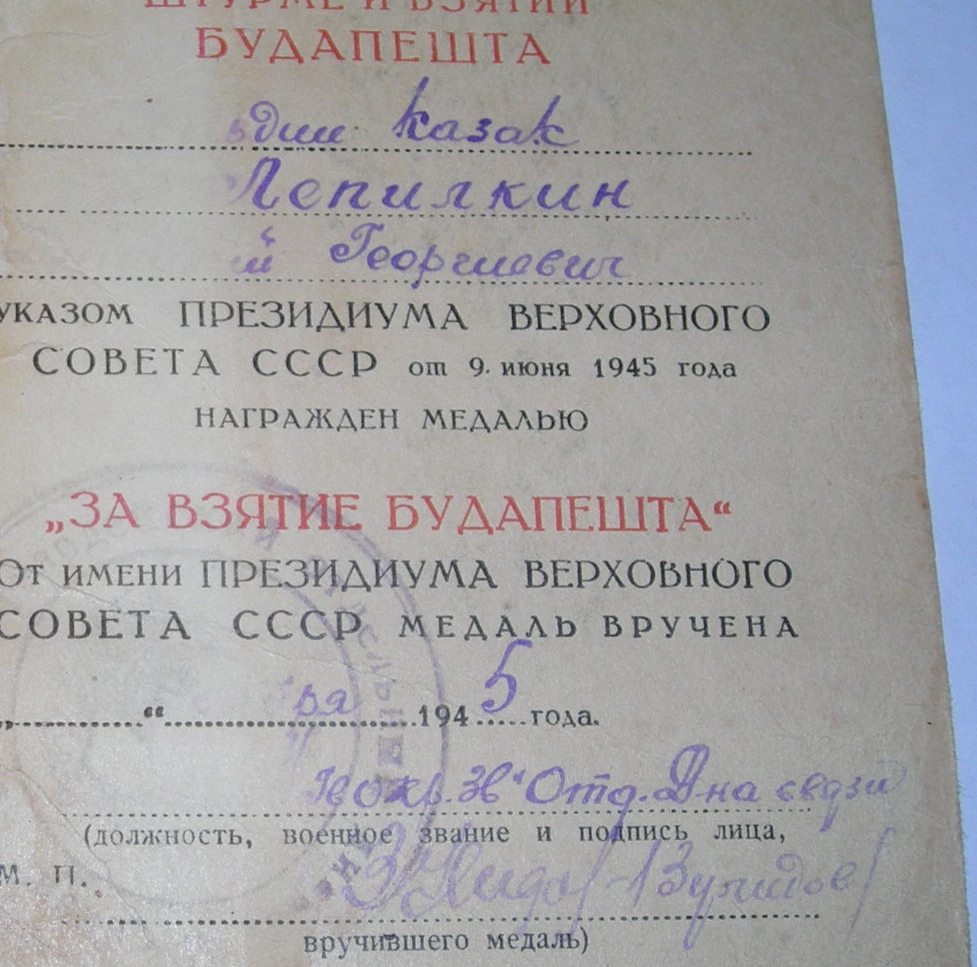 ШТУРМЕ И ВЗЯТИИ
БУДАПЕШТА
казак
Лепилкин
й Георгиевич
УКАЗОМ ПРЕЗИДИУМА ВЕРХОВНОГО
СОВЕТА СССР от 9. июня 1945 года
НАГРАЖДЕН МЕДАЛЬЮ
„ЗА ВЗЯТИЕ БУДАПЕШТА“
От имени ПРЕЗИДИУМА ВЕРХОВНОГО
СОВЕТА СССР МЕДАЛЬ ВРУЧЕНА
„ “ бря 1945 года.
Отд. Д-на связи
(должность, военное звание и подпись лица,
М. П.
вручившего медаль)